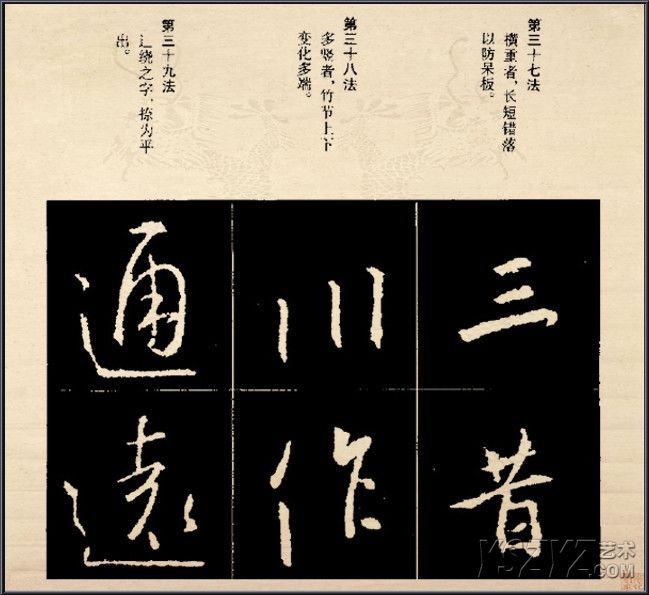 第三十七法
横重者，长短错落
以防呆板。
第三十八法
多竖者，竹节上下
变化多端。
第三十九法
辶绕之字，捺为平
出。
三
昔
川
作
通
遠
YSZYZ艺术
.COM